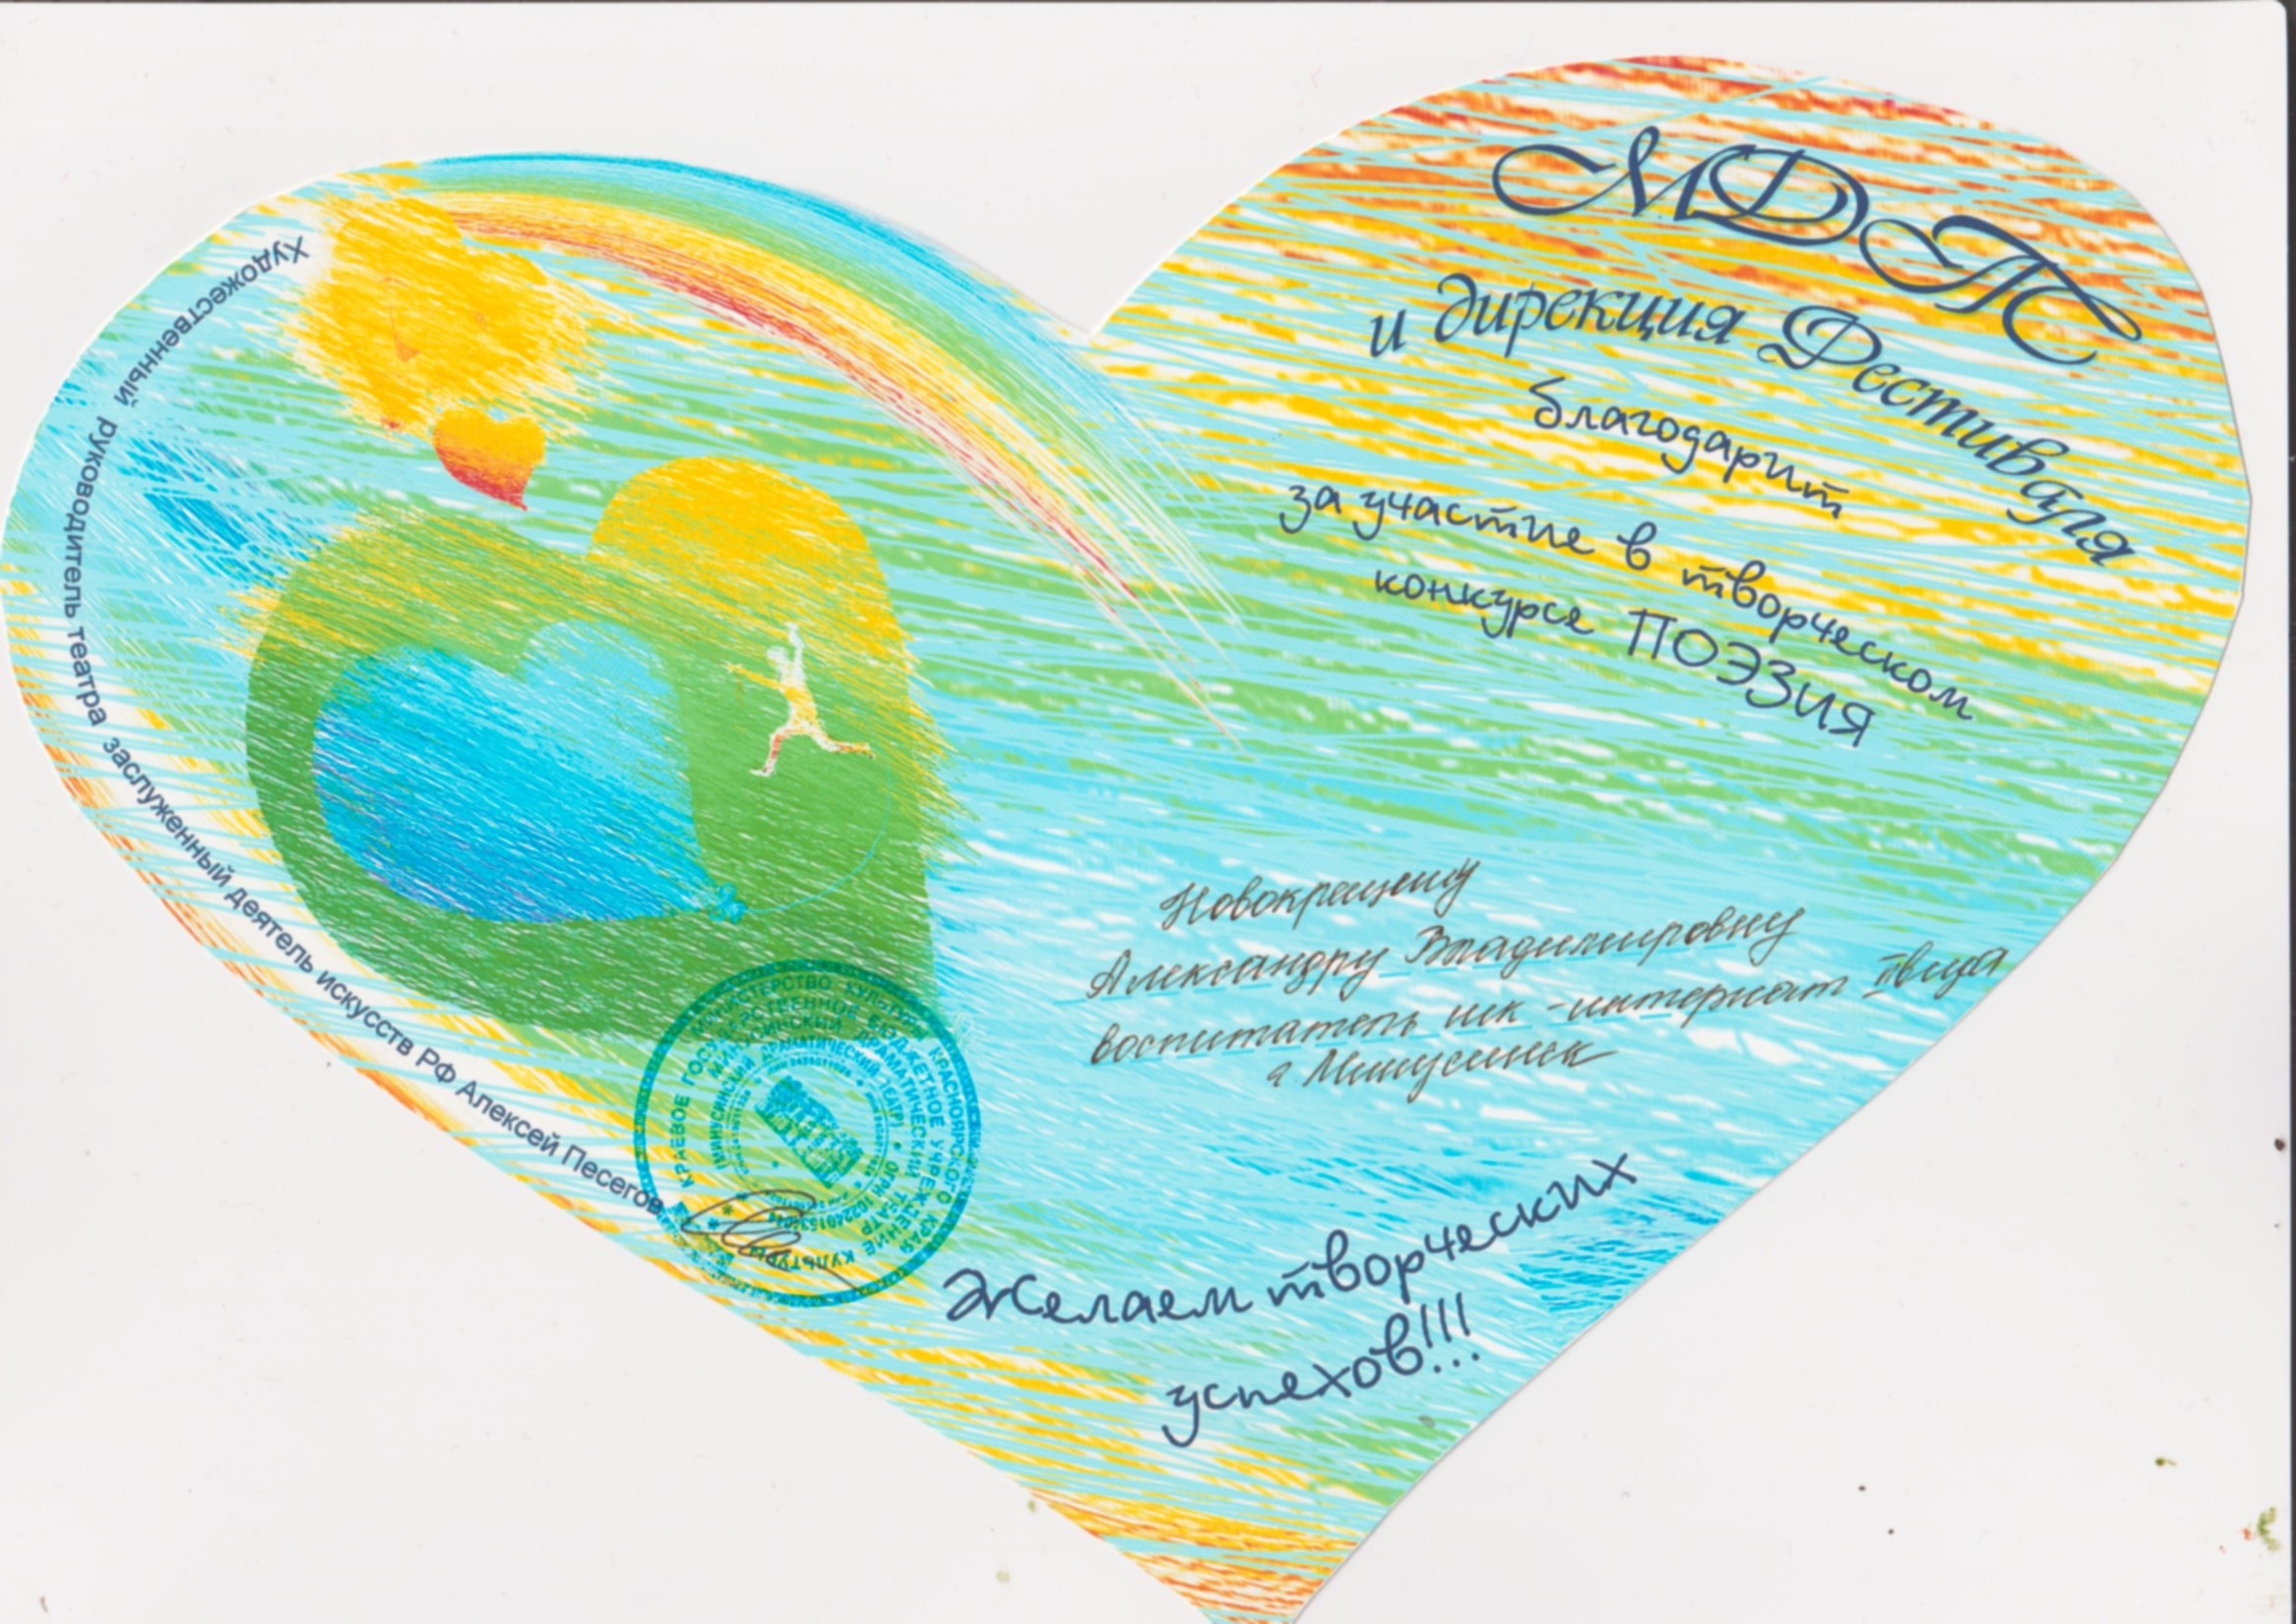 МДТ
и дирекция Фестиваля
благодарит
за участие в творческом
конкурсе ПОЭЗИЯ
Новокрещену
Александру Владимировну
воспитатель шк-интернат
г Минусинск
Желаем творческих
успехов!!!
Художественный руководитель театра заслуженный деятель искусств РФ Алексей Песегов
МИНИСТЕРСТВО КУЛЬТУРЫ КРАСНОЯРСКОГО КРАЯ
КРАЕВОЕ ГОСУДАРСТВЕННОЕ БЮДЖЕТНОЕ УЧРЕЖДЕНИЕ КУЛЬТУРЫ
МИНУСИНСКИЙ ДРАМАТИЧЕСКИЙ ТЕАТР
(МИНУСИНСКИЙ ДРАМАТИЧЕСКИЙ ТЕАТР)